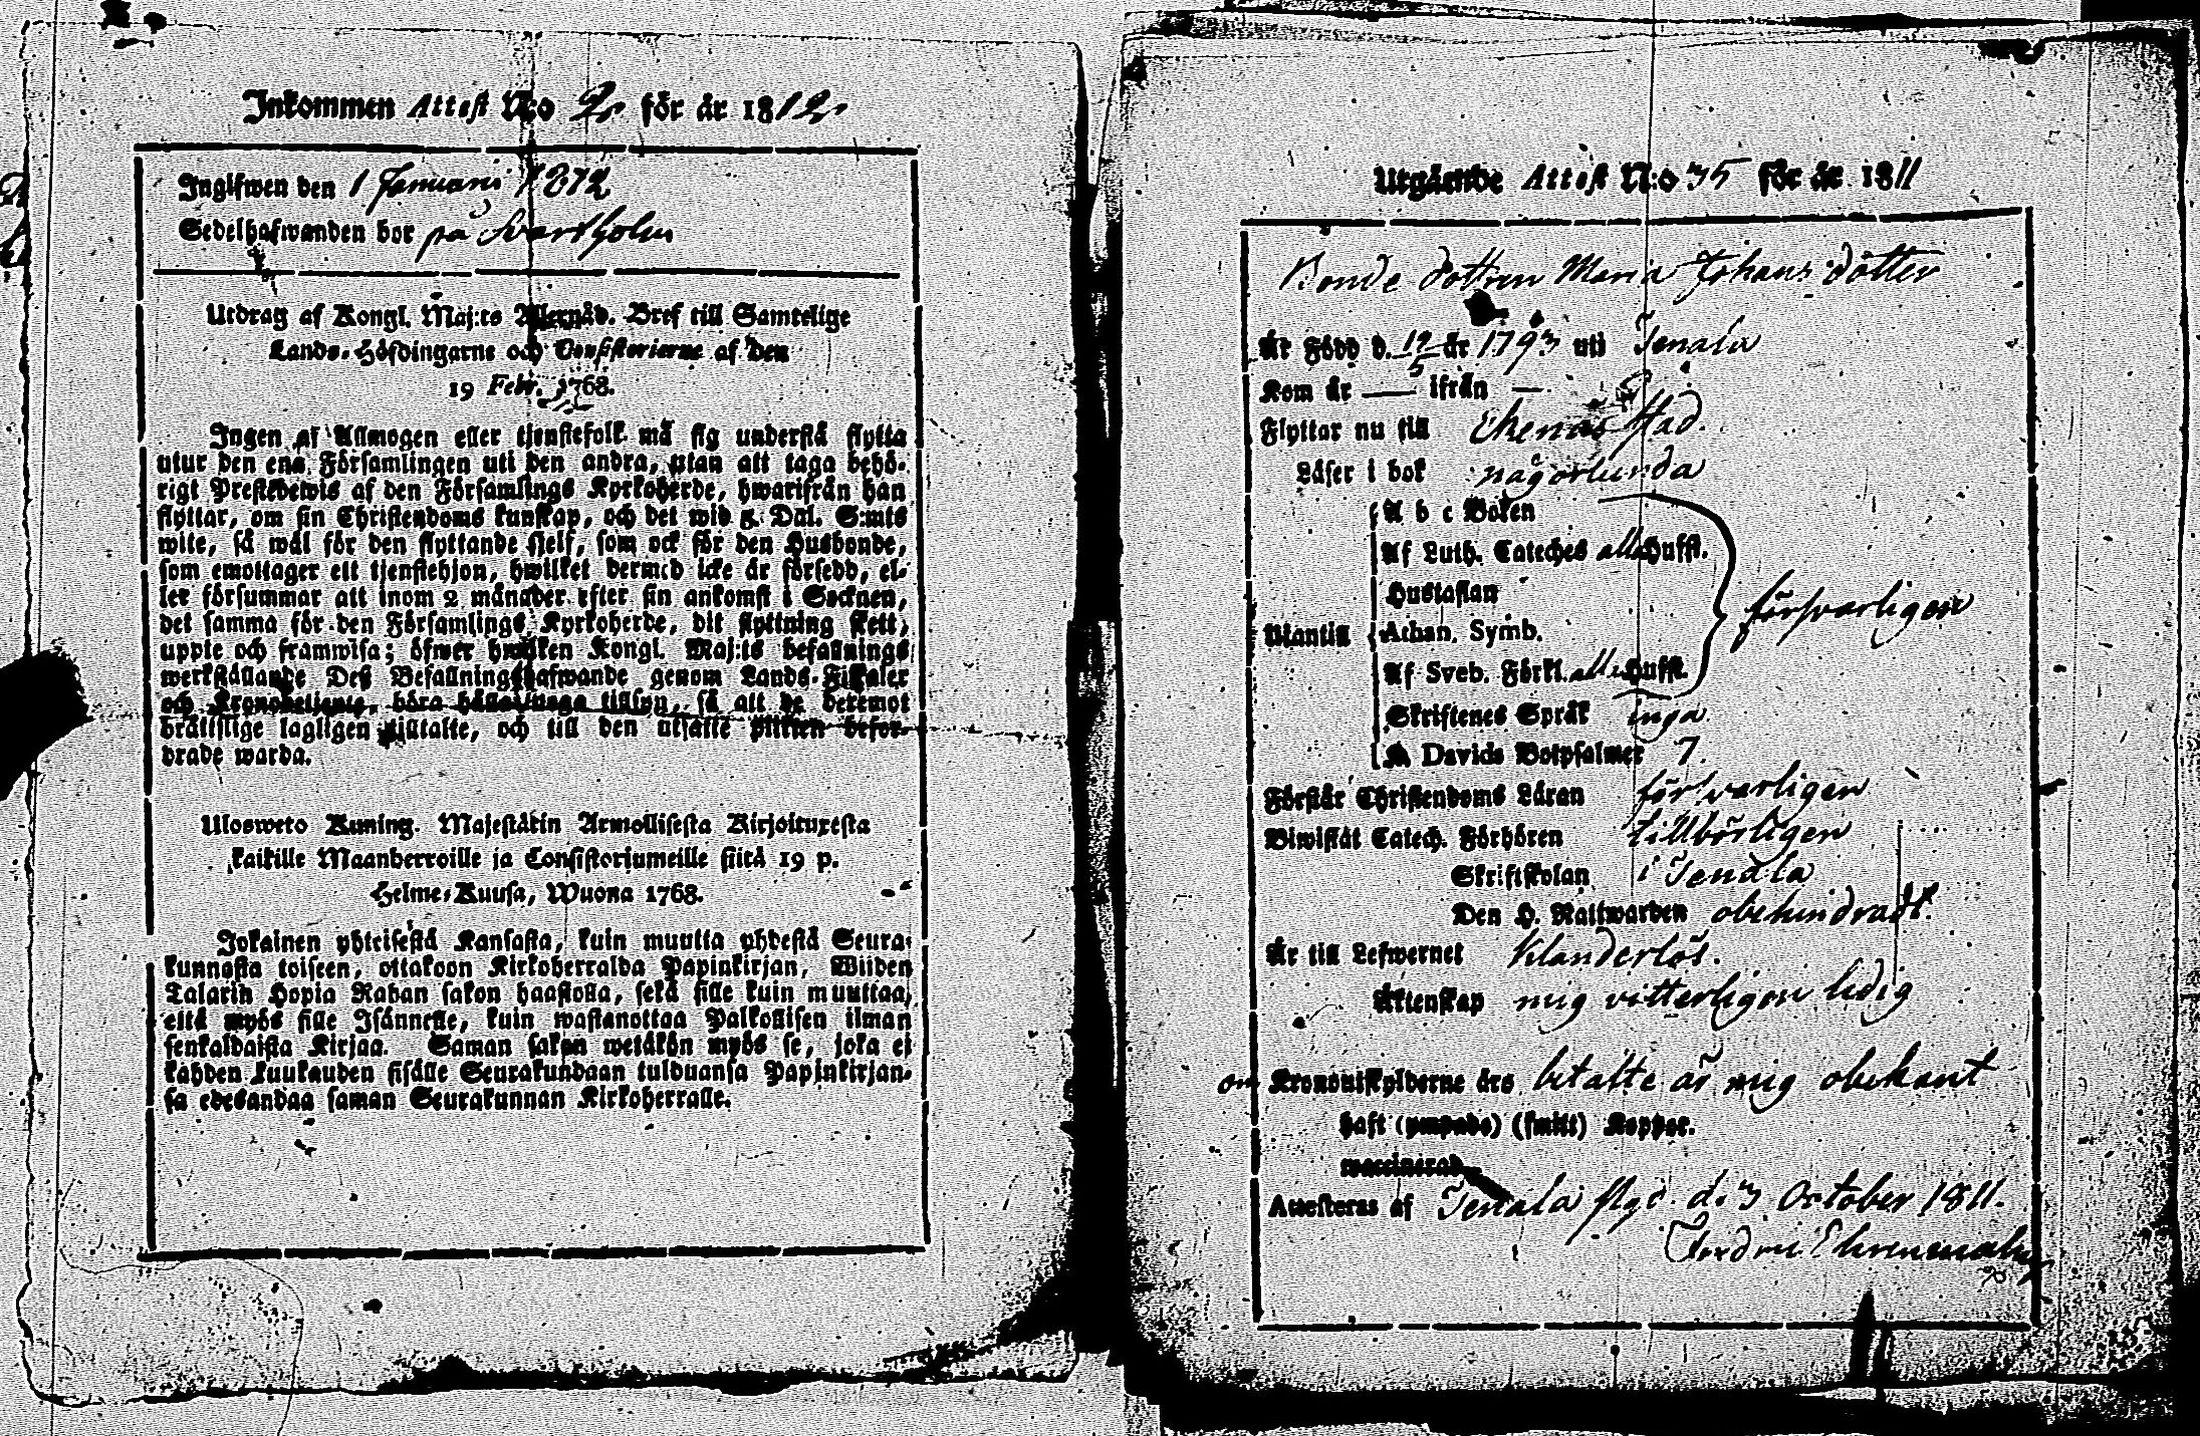 Inkommen Attest N:o 2 för år 1812
Ingifwen den 1 Januarii 1812
Sedelhafwanden bor på Svartholm
Utdrag af Kongl. Maj:ts Allernåd. Bref till Samtelige
Lands-Höfdingarne och Consistorierne af den
19 Febr. 1768.
Ingen af Allmogen eller tjenstefolk må sig understå flytta
utur den ena Församlingen uti den andra, utan att taga behö-
rigt Prestebewis af den Församlings Kyrkoherde, hwarifrån han
flyttar, om sin Christendoms kunskap, och det wid 5 Dal. S:mts
wite, så wäl för den flyttande sjelf, som ock för den Husbonde,
som emottager ett tjenstehjon, hwilket dermed icke är försedd, el-
ler försummar att inom 2 månader efter sin ankomst i Socknen,
det samma för den Församlings Kyrkoherde, dit flyttning skett,
uppte och framwisa; öfwer hwilken Kongl. Maj:ts befallnings
werkställande Des Befallningshafwande genom Lands-Fiskaler
och Kronobetjente, böra hålla noga tillsyn, så att de deremot
brättslige lagligen tilltalte, och till den utsatte plikten befor-
drade warda.
Ulosweto Kuning. Majestätin Armollisesta Kirjoituxesta
kaikille Maanherroille ja Consistoriumeille siitä 19 p.
Helme-Kuusa, Wuona 1768.
Jokainen yhteisestä Kansasta, kuin muutta yhdestä Seura-
kunnasta toiseen, ottakoon Kirkoherralda Papinkirjan, Wiiden
Talarin Hopia Rahan sakon haastolla, sekä sille kuin muuttaa,
että myös sille Isännelle, kuin wastanottaa Palkollisen ilman
senkaldaista Kirjaa. Saman sakon wetäkön myös se, joka ei
kahden kuukauden sisälle Seurakundaan tulduansa Papinkirjan-
sa edesandaa saman Seurakunnan Kirkoherralle.
Utgående Attest N:o 35 för år 1811
Bonde dottren Maria Johans dotter
Är Född d. 12/5 år 1793 uti Tenala
Kom år — ifrån —
Flyttar nu till Ekenäs stad.
Läser i bok någorlunda
A b c Boken
Af Luth. Cateches alla Hufst.
Hustaflan
Utantill Athan. Symb. försvarligen
Af Sveb. Förkl. alla Hufst.
Skriftenes Språk inga
K. Davids Botpsalmer 7.
Förstår Christendoms Läran försvarligen
Biwistat Catech. Förhören tillbörligen
Skriftskolan i Tenala
Den H. Nattwarden obehindradt.
Är till Lefwernet Klanderlös.
Äktenskap mig vitterligen ledig
om Kronoutskylderne års betalte är mig obekant
haft (ympade) (smitt) Koppor.
waccinerad
Attesteras af Tenala pstgd. d. 3 October 1811.
Ehrenmalm